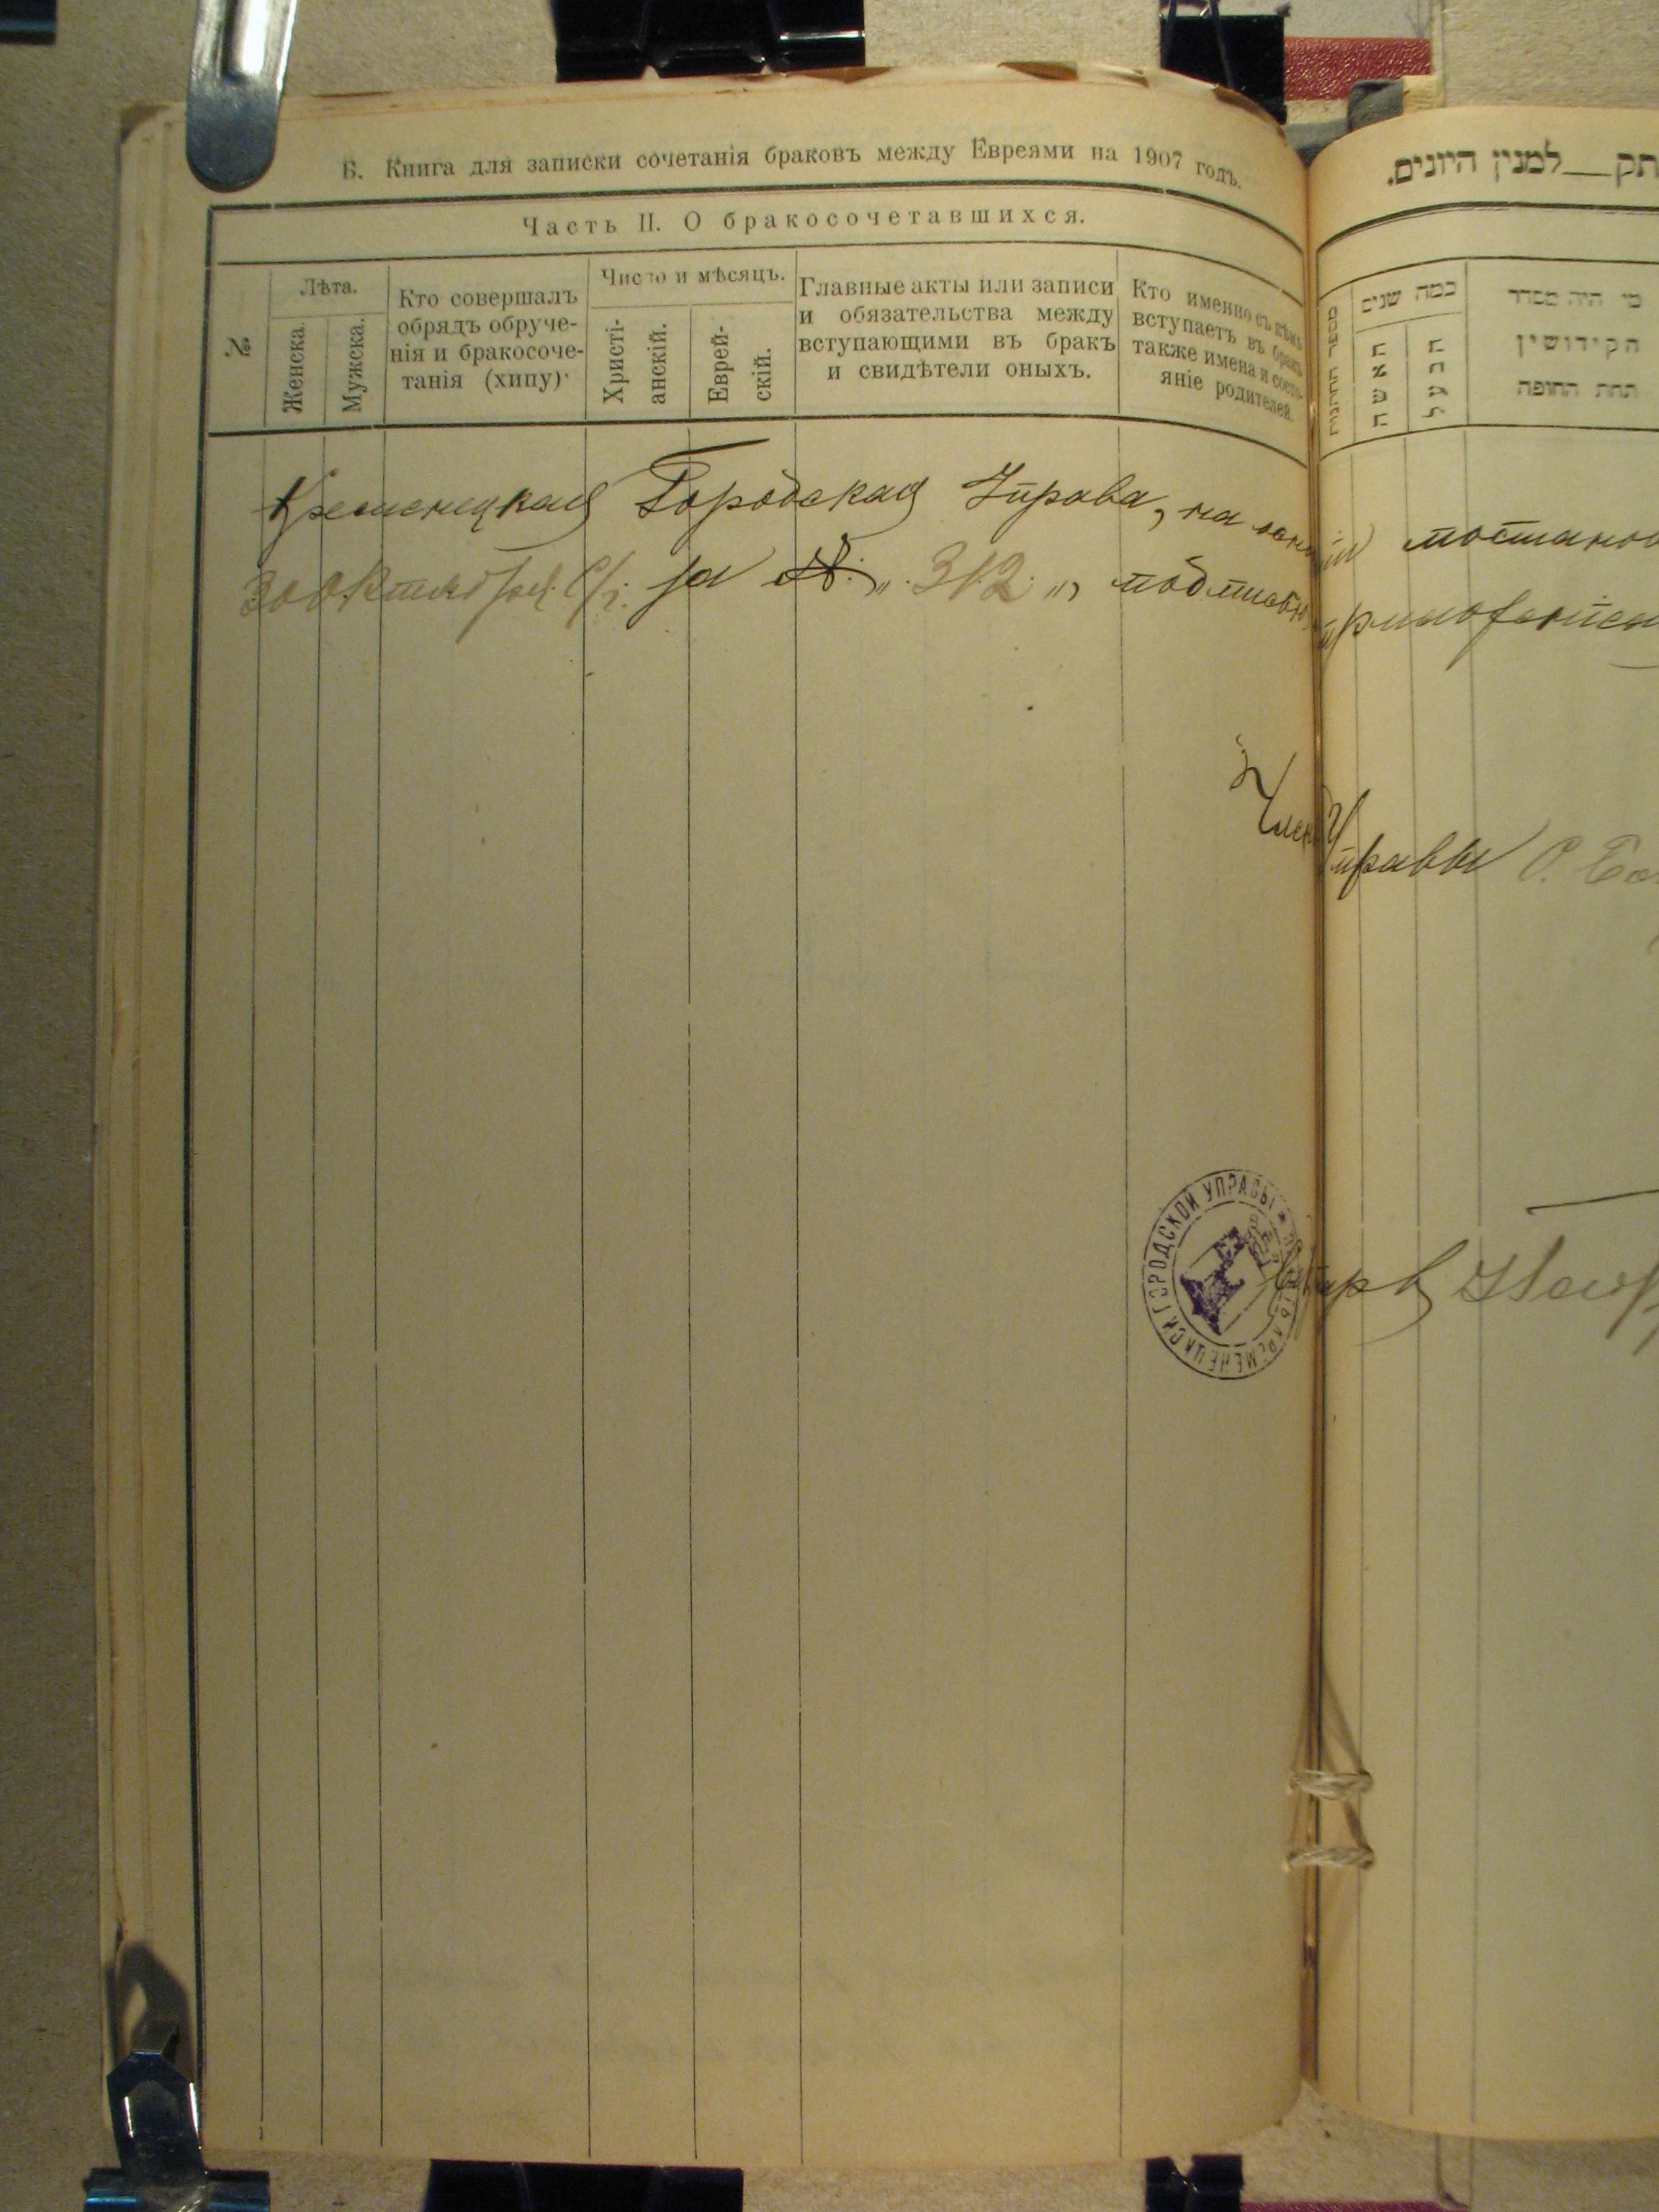 Б. Книга для записки сочетанія браковъ между Евреями на 1907 годъ.
Часть II. О бракосочетавшихся.
№
Лѣта.
Женска.
Мужска.
Кто совершалъ
обрядъ обруче-
нія и бракосоче-
танія (хипу)·
Число и мѣсяцъ.
Христі-
анскій.
Еврей-
скій.
Главные акты или записи
и обязательства между
вступающими въ бракъ
и свидѣтели оныхъ.
Кто именно съ кѣмъ
вступаетъ въ бракъ
также имена и состо-
яніе родителей.
Кременецкая Городская Управа, на
30 Октября С/г. за №. „ 312 „,
Членъ
ГОРОДСКОЙ УПРАВЫ * ПЕЧАТЬ КРЕМЕНЕЦКОЙ
תק__למנין היונים.
מספר החתונות
כמה שנים
האשה
הבעל
מי היה מסדר
הקידושין
תחת החופה
Управы